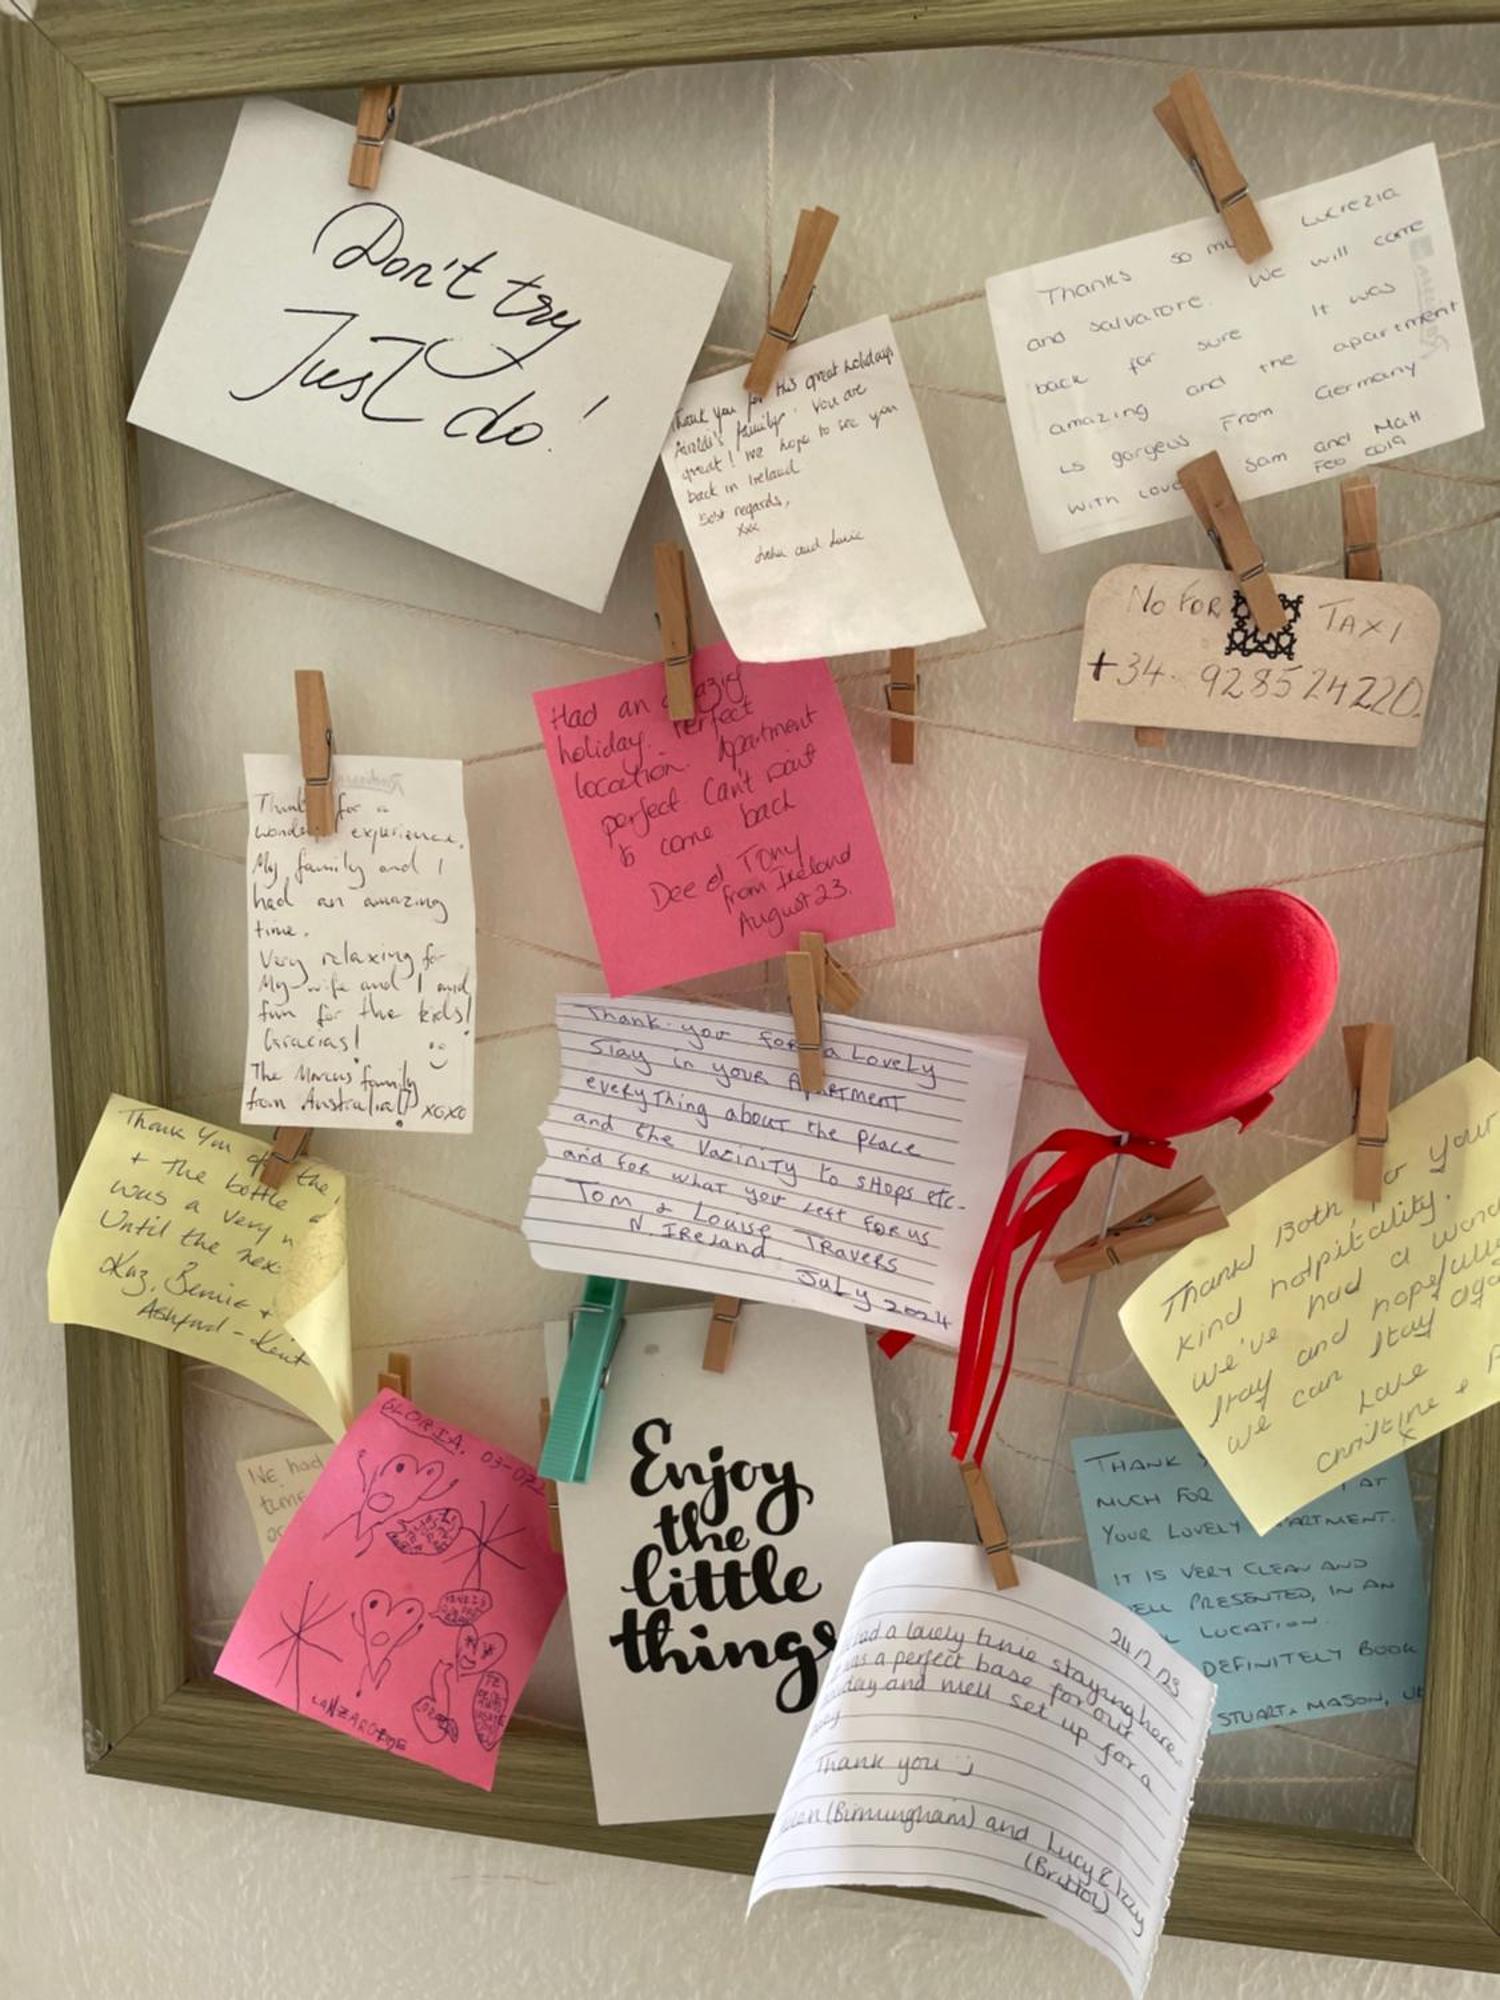 Don't try
Just do!
Thank you for this great holidays
family. You are
great! We hope to see you
back in Ireland
Best regards,
xxx
and
Thanks so mu Lucrezia
and Salvatore. We will come
back for sure It was
amazing and the apartment
is gorgeus From Germany
with love Sam and Matt
Feb 2019
No FOR TAXI
+34. 928524220.
Had an
holiday. Perfect
location. Apartment
perfect Can't wait
to come back
Dee & Tony
from Ireland
August 23.
Thank for a
experience.
My family and I
had an amazing
time.
Very relaxing for
My wife and I and
fun for the kids!
Gracias!
The Marcus' family
from Australia! xoxo
Thank you for a Lovely
Stay in your Apartment
everything about the place
and the Vacinity to shops etc.
and for what you left for us
Tom & Louise Travers
N. Ireland.
July 2024
Thank You the
+ the bottle
was a very
Until the nex
Kaz, Bernie +
Ashford - Kent
Thank Both your
kind hospitality.
We've had a
stay and hopefull
we can stay aga
Love
Christine +
x
We had
time
GLORIA. 03-07
LANZAROTE
Enjoy
the
little
things
THANK
MUCH FOR AT
YOUR LOVELY APARTMENT.
IT IS VERY CLEAN AND
ELL PRESENTED, IN AN
LOCATION.
DEFINITELY BOOK
STUART & MASON, UK
24/2/23
had a lovely time staying here.
was a perfect base for our
and well set up for a
Thank you :)
(Birmingham) and Lucy & Izzy
(Bristol)